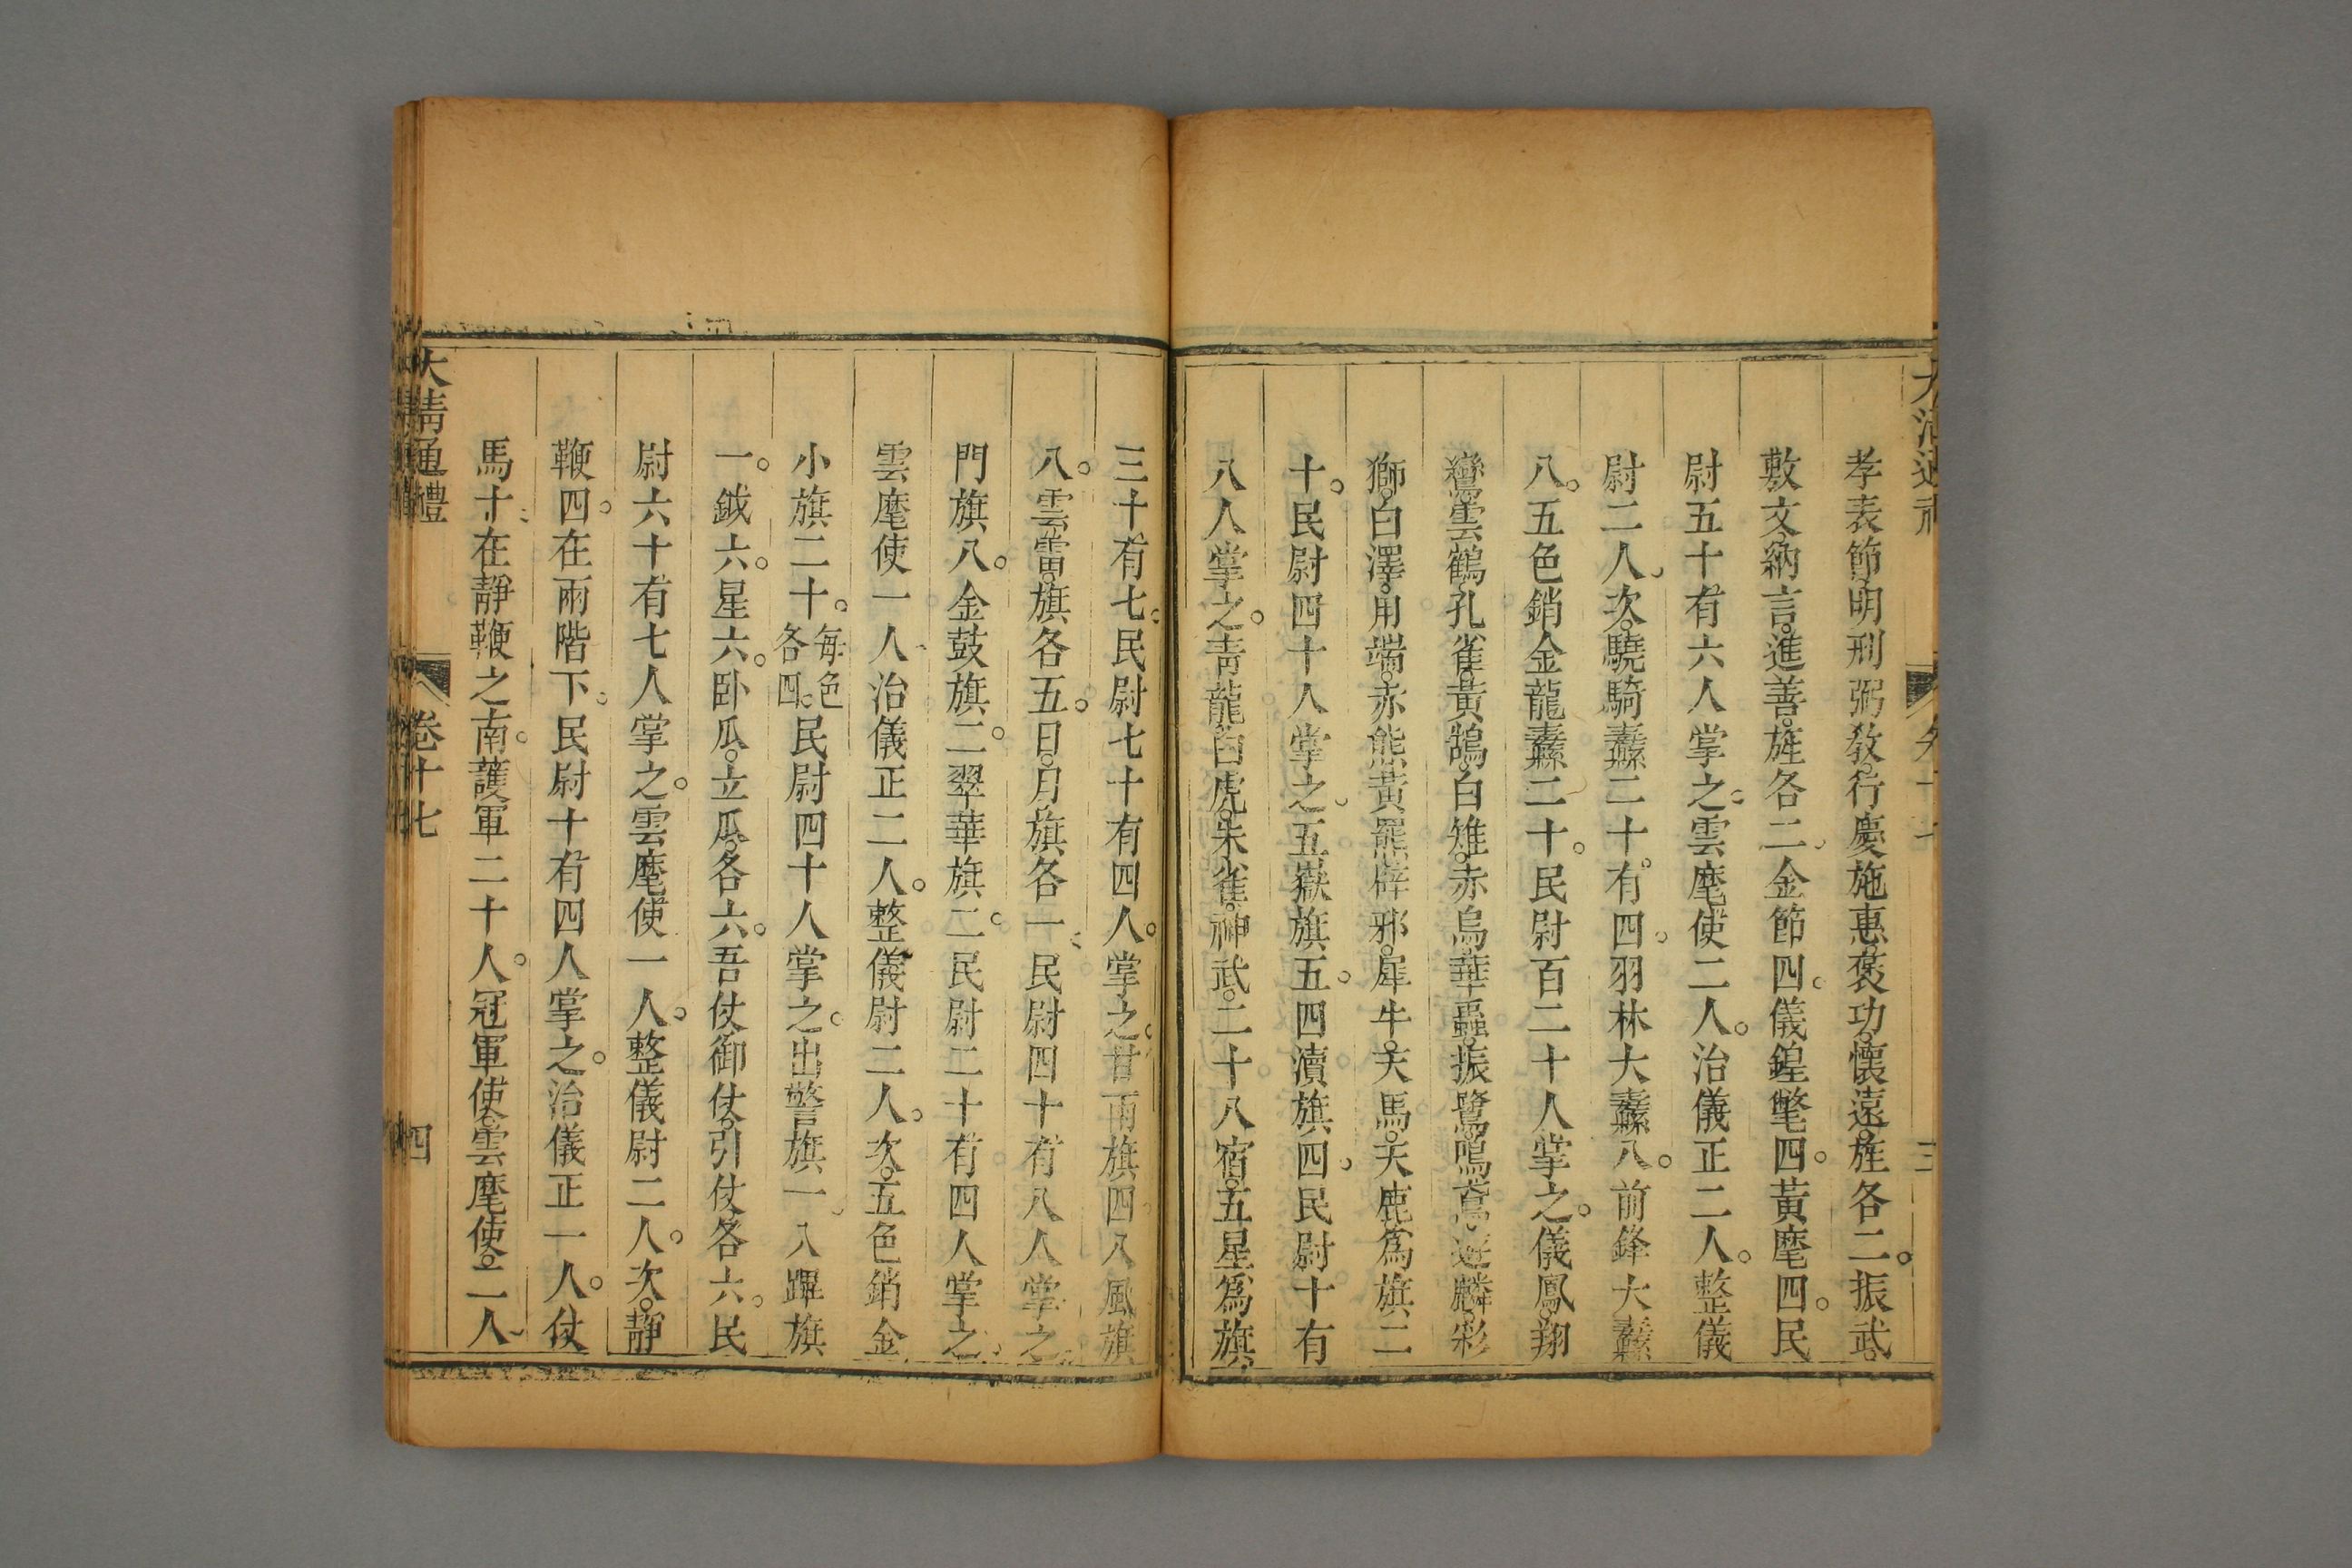 孝表節。明刑弼敎。行慶施惠。褒功。懷遠。旌各二。振武。
敷文。納言。進善。旌各二。金節四。儀鍠氅四。黃麾四。民
尉五十有六人掌之。雲麾使二人。治儀正二人。整儀
尉二人。次。驍騎纛二十有四。羽林大纛八。前鋒大纛
八。五色銷金龍纛二十。民尉百二十人掌之。儀鳳。翔
鸞。雲鶴。孔雀。黃鵠。白雉。赤烏。華蟲。振鷺。鳴鳶。遊麟。彩
獅。白澤。用端。赤熊。黃羆。辟邪。犀牛。天馬。天鹿。爲旗二
十。民尉四十人掌之。五嶽旗五。四瀆旗四。民尉十有
八人掌之。靑龍。白虎。朱雀。神武。二十八宿。五星。爲旗
三十有七。民尉七十有四人。掌之。甘雨旗四。八風旗
八。雲。雷。旗各五。日。月。旗各一。民尉四十有八人掌之。
門旗八。金鼓旗二。翠華旗二。民尉二十有四人掌之。
雲麾使一人。治儀正二人。整儀尉二人。次。五色銷金
小旗二十。每色各四。民尉四十人掌之。出警旗一。入蹕旗
一。鉞六。星六。卧瓜。立瓜。各六。吾仗。御仗。引仗。各六。民
尉六十有七人掌之。雲麾使一人。整儀尉二人。次。靜
鞭四。在兩階下。民尉十有四人掌之。治儀正一人。仗
馬十。在靜鞭之南。護軍二十人。冠軍使。雲麾使。二人。
大淸通禮 卷十七 四